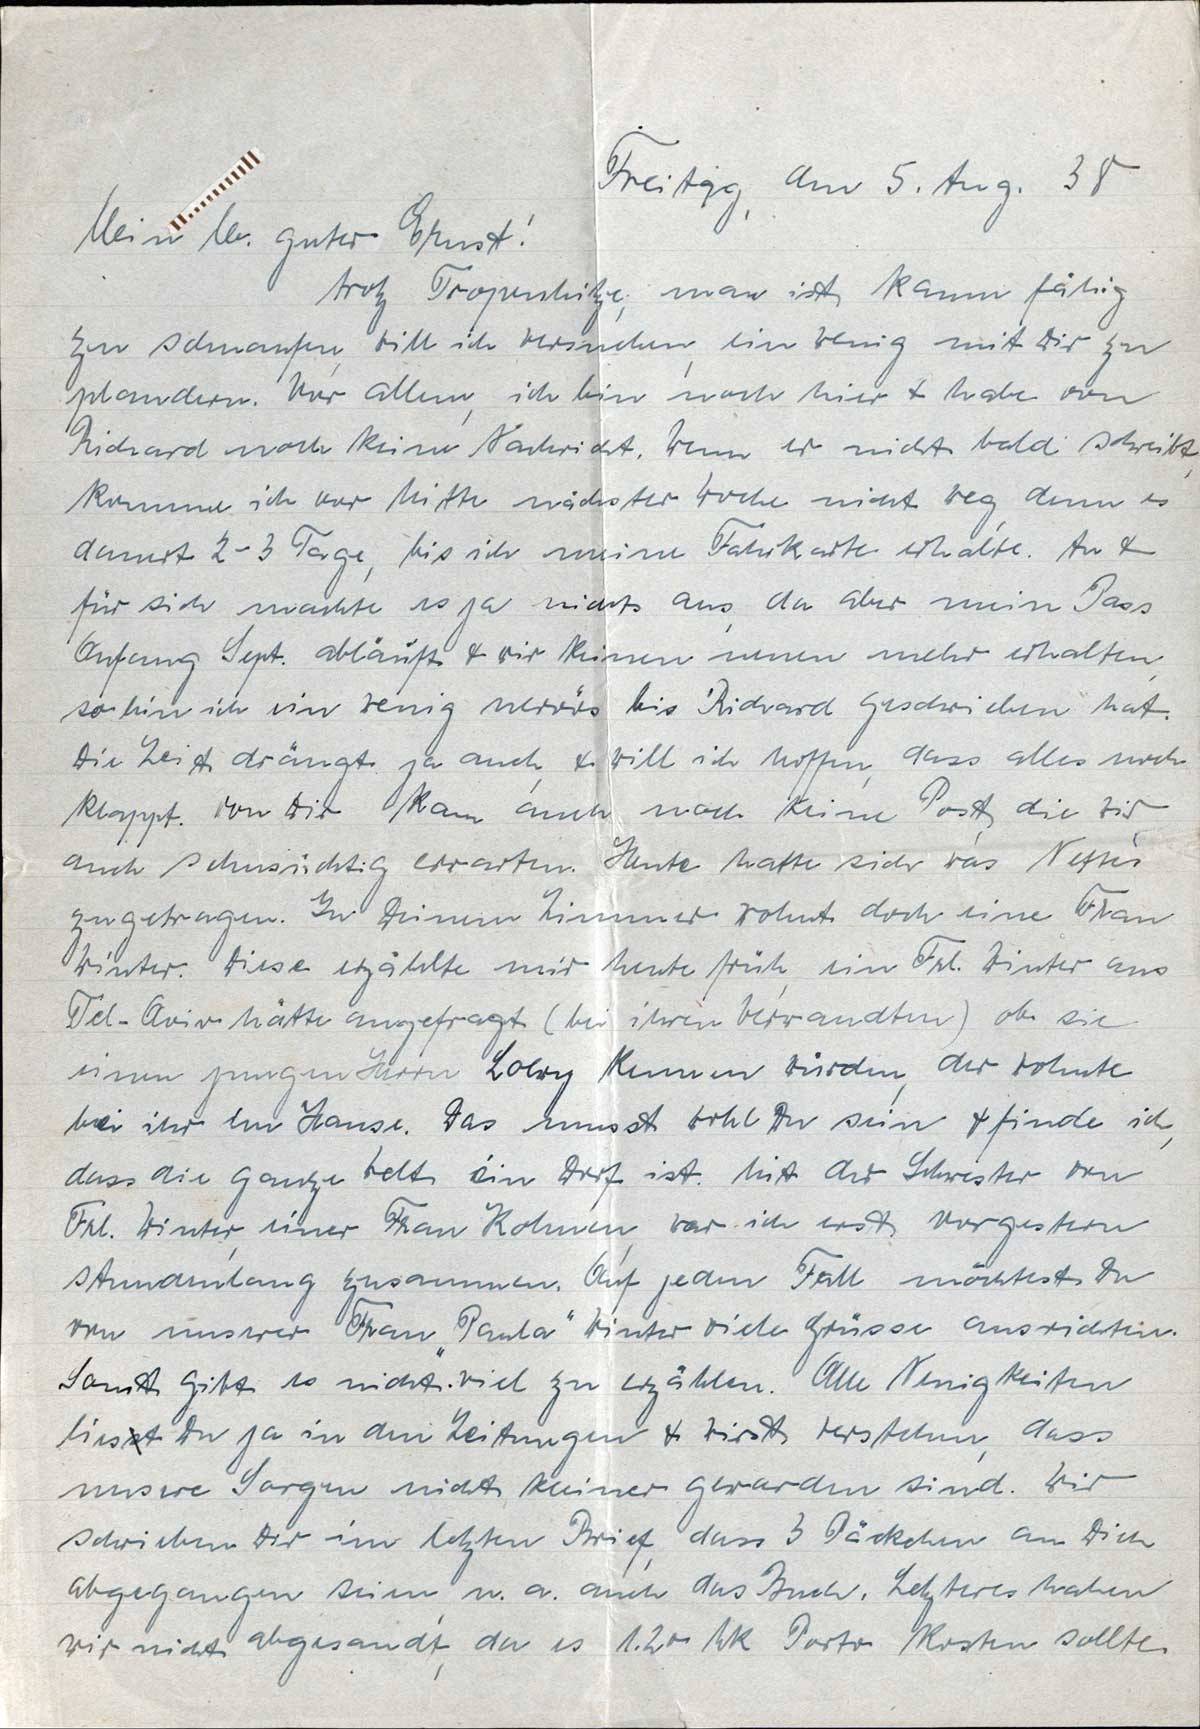 Freitag, den 5. Aug. 38
Mein lb. guter Ernst!
trotz Tropenhitze, man ist kaum fähig
zu schnaufen, will ich versuchen, ein wenig mit Dir zu
plaudern. Vor allem, ich bin noch hier & habe von
Richard noch keine Nachricht. Wenn er nicht bald schreibt,
komme ich vor Mitte nächster Woche nicht weg, denn es
dauert 2-3 Tage, bis ich meine Fahrkarte erhalte. An &
für sich machte es ja nichts aus, da aber mein Pass
Anfang Sept. abläuft & wir keinen neuen mehr erhalten,
so bin ich ein wenig nervös bis Richard geschrieben hat.
Die Zeit drängt ja auch & will ich hoffen, dass alles noch
klappt. Von Dir kam auch noch keine Post, die wir
auch sehnsüchtig erwarten. Heute hatte sich was Nettes
zugetragen. In Deinem Zimmer wohnt doch eine Frau
Winter. Diese erzählte mir heute früh, ein Frl. Winter aus
Tel-Aviv hätte angefragt (bei ihren Verwandten) ob sie
einen jungen Herrn Loewy kennen würden, der wohnte
bei ihr im Hause. Das musst wohl Du sein & finde ich,
dass die ganze Welt ein Dorf ist. Mit der Schwester von
Frl. Winter, einer Frau Kohnen, war ich erst vorgestern
stundenlang zusammen. Auf jeden Fall möchtest Du
von unserer Frau „Paula" Winter viele Grüsse ausrichten.
Sonst gibt es nicht viel zu erzählen. Alle Neuigkeiten
liest Du ja in den Zeitungen & wirst verstehen, dass
unsere Sorgen nicht kleiner geworden sind. Wir
schrieben Dir im letzten Brief, dass 3 Päckchen an Dich
abgegangen seien, u. a. auch das Buch. Letzteres haben
wir nicht abgesandt, da es 1.20 Mk Porto kosten sollte.